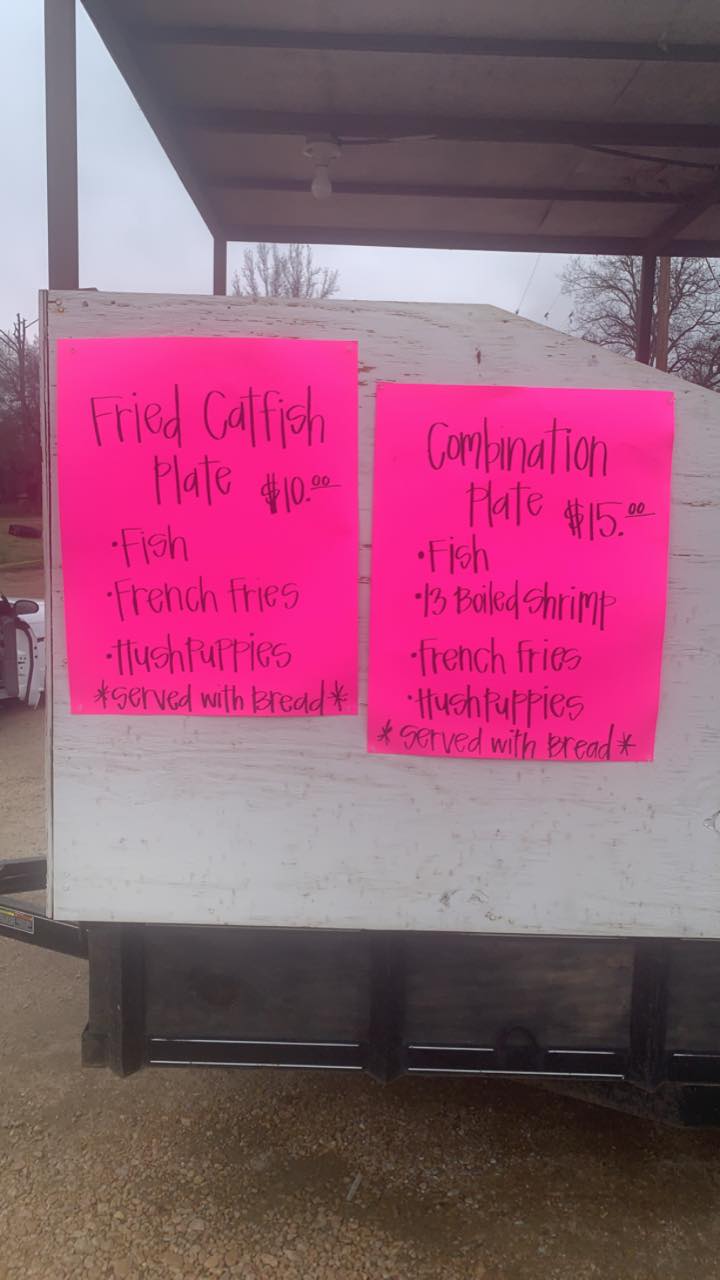 Fried Catfish
Plate $10.00
•Fish
•French Fries
•HushPuppies
*Served with Bread*
Combination
Plate $15.00
•Fish
•13 Boiled Shrimp
•French Fries
•HushPuppies
*Served with Bread*